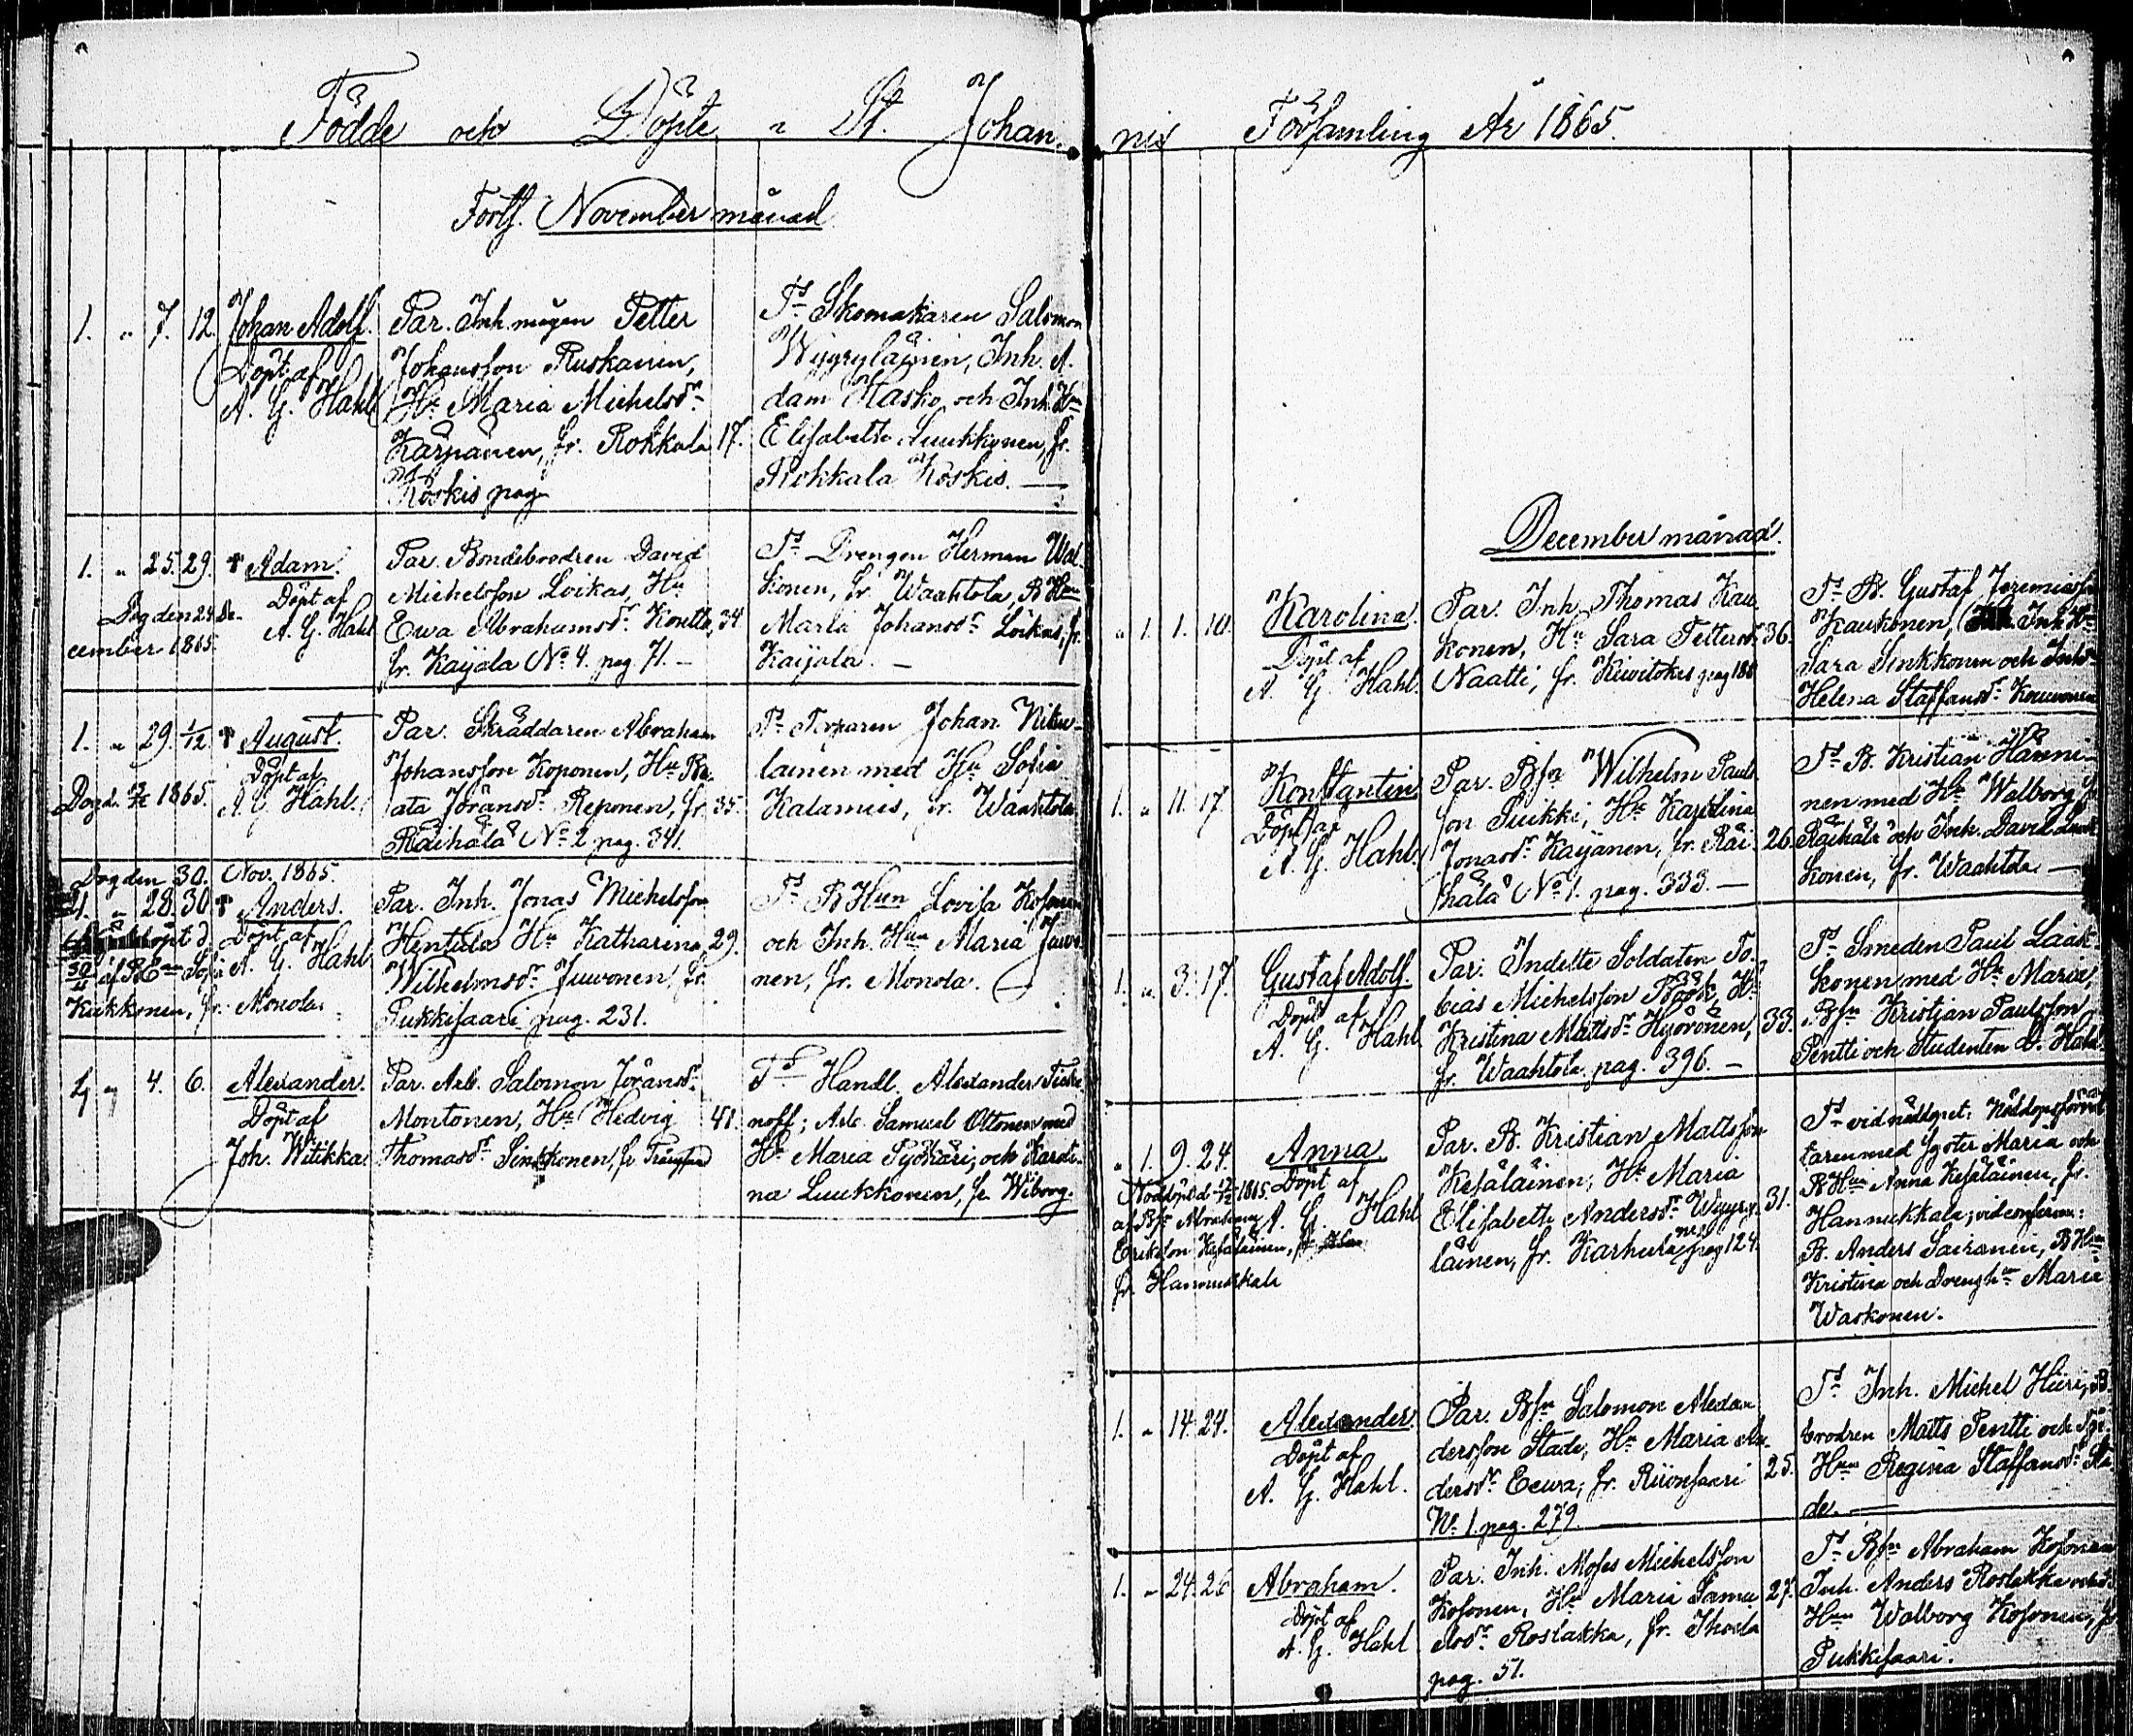 Födde och Döpte i St. Johan-
nis Församling År 1865.
Forts. November månad
1. " 7. 12. Johan Adolf.
Döpt af
A. G. Hahl
Par. Inh. mågen Petter
Johansson Ruskanin,
Hu Maria Michelsdr
Kärpänen, fr. Rokkala 17.
Koskis pag
Ts Skomakaren Salomon
Wyyryläinen, Inh. A-
dam Hasko och Inh. Hun
Elisabeth Luukkonen, fr.
Rokkala Koskis.
1. " 25. 29. † Adam.
Döpt af
A. G. Hahl
Dog den 24 De-
cember 1865.
Par. Bondebrodren David
Michelsson Loikas, Hu
Ewa Abrahamsdr Kontto, 34.
fr. Kaijala No 4. pag. 71.
Ts Drengen Herman
konen, fr. Waahtola, B Hun
Maria Johansdr Loikas, fr.
Kaijala.
1. " 29. 1/12. † August.
Döpt af
A. G. Hahl.
Dog d. 1865.
Par. Skräddaren Abraham
Johansson Koponen, Hu Be-
ata Jöransdr Reponen, fr. 35.
Räihälä No 2 pag. 341.
Ts Torparen Johan
lainen med Hu Sofia
Kalamies, fr. Waahtola
Dog den 30. Nov. 1865.
1. " 28. 30. † Anders.
Döpt af
A. G. Hahl
Kukkonen, fr. Monola.
Par. Inh. Jonas Michelsson
Hentula Hu Katharina 29.
Wilhelmsdr Juvonen, fr.
Pukkisaari pag. 231.
Ts B Hun Lovisa Kosonen
och Inh. Hun Maria Juvo-
nen, fr. Monola.
4. 6. Alexander.
Döpt af
Joh. Witikka.
Par. Arb. Salomon Jöranss.
Montonen, Hu Hedvig 41.
Thomasdr Sinkkonen, fr
Ts Handl. Alexander
noff; Arb. Samuel Ottonen med
Hu Maria Pyökäri, och Karoli-
na Luukkonen, fr. Wiborg.
December månad.
" 1. 1. 10. Karolina.
Döpt af
A. G. Hahl.
Par. Inh. Thomas Kau-
konen, Hu Sara Pettersdr 36.
Naatti, fr. Kiwitokes pag 188
Ts B. Gustaf Jeremiasson
Kaukonen, Inh Hu
Sara Sinkkonen och Inh
Helena Staffansdr Kouvonen
1. " 11. 17. Konstantin
Döpt af
A. G. Hahl.
Par. Bsn Wilhelm Pauls-
son Suikki, Hu Karolina
Jonasdr Kaijanen, fr. Räi- 26.
hälä No 1. pag. 333.
Ts B. Kristian Hänni-
nen med Hu Walborg, fr
Räihälä och Inh. David
konen, fr. Waahtola
1. " 3. 17. Gustaf Adolf.
Döpt af
A. G. Hahl
Par. Indelte Soldaten To-
bias Michelsson Bäck, Hu
Kristina Mattsdr Hyövönen, 33.
fr. Waahtola. pag. 396.
Ts Smeden Paul Laak-
konen med Hu Maria,
Bsn Kristian Paulsson
Pentti och Studenten O. Hahl.
" 1. 9. 24. Anna
Döpt af
A. G. Hahl
Nöddöpt d. 1865.
af Bsn Abraham
Eriksson Kesäläinen,
fr. Hannukkala
Par. B. Kristian Mattsson
Kesäläinen, Hu Maria
Elisabeth Andersdr Wyyry- 31.
läinen, fr. Karhula pag 124.
Ts vid nöddopet: Nöddopsförrät-
taren med syster Maria och
B Hun Anna Kesäläinen, fr.
Hannukkala; vid conferm:
B. Anders Sairanen, B Hun
Kristina och Drengh. Maria
Waskonen.
1. " 14. 24. Alexander.
Döpt af
A. G. Hahl.
Par. Bsn Salomon Alexan-
dersson Stade, Hu Maria An-
dersdr Eewa, fr. Riionsaari 25.
No 1. pag. 279.
Ts Inh. Michel Hiiri, B.
brodren Matts Pentti och
Hun Regina Staffansdr Sta-
de.
1. " 24. 26. Abraham.
Döpt af
A. G. Hahl
Par. Inh. Moses Michelsson
Kosonen, Hu Maria Samu- 27.
elsdr Roslakka, fr. Ihola
pag. 51.
Ts Bsn Abraham Kosonen
Inh. Anders Roslakka och
Hun Walborg Kosonen, fr
Pukkisaari.